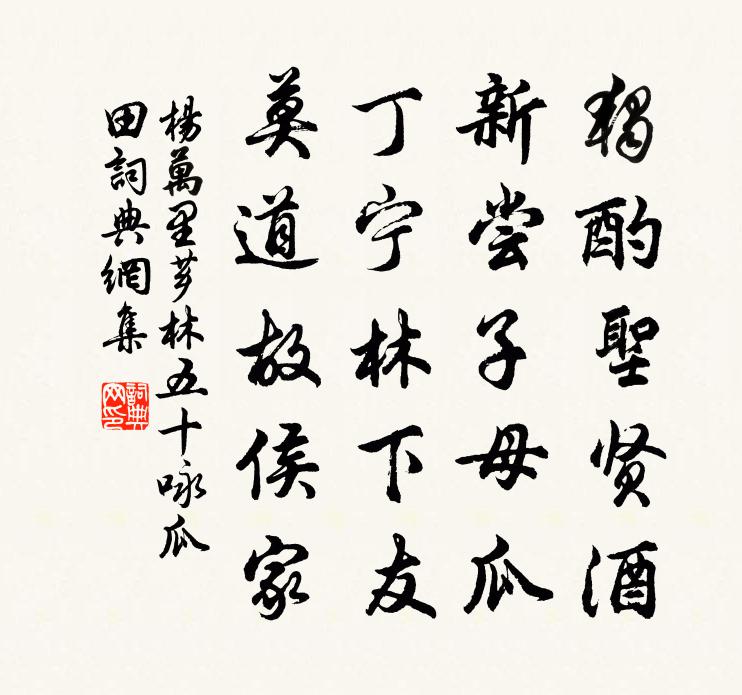 獨酌聖贤酒
新尝子母瓜
丁宁林下友
莫道故侯家
楊萬里芗林五十咏瓜
田詞典網集
詞典
网印